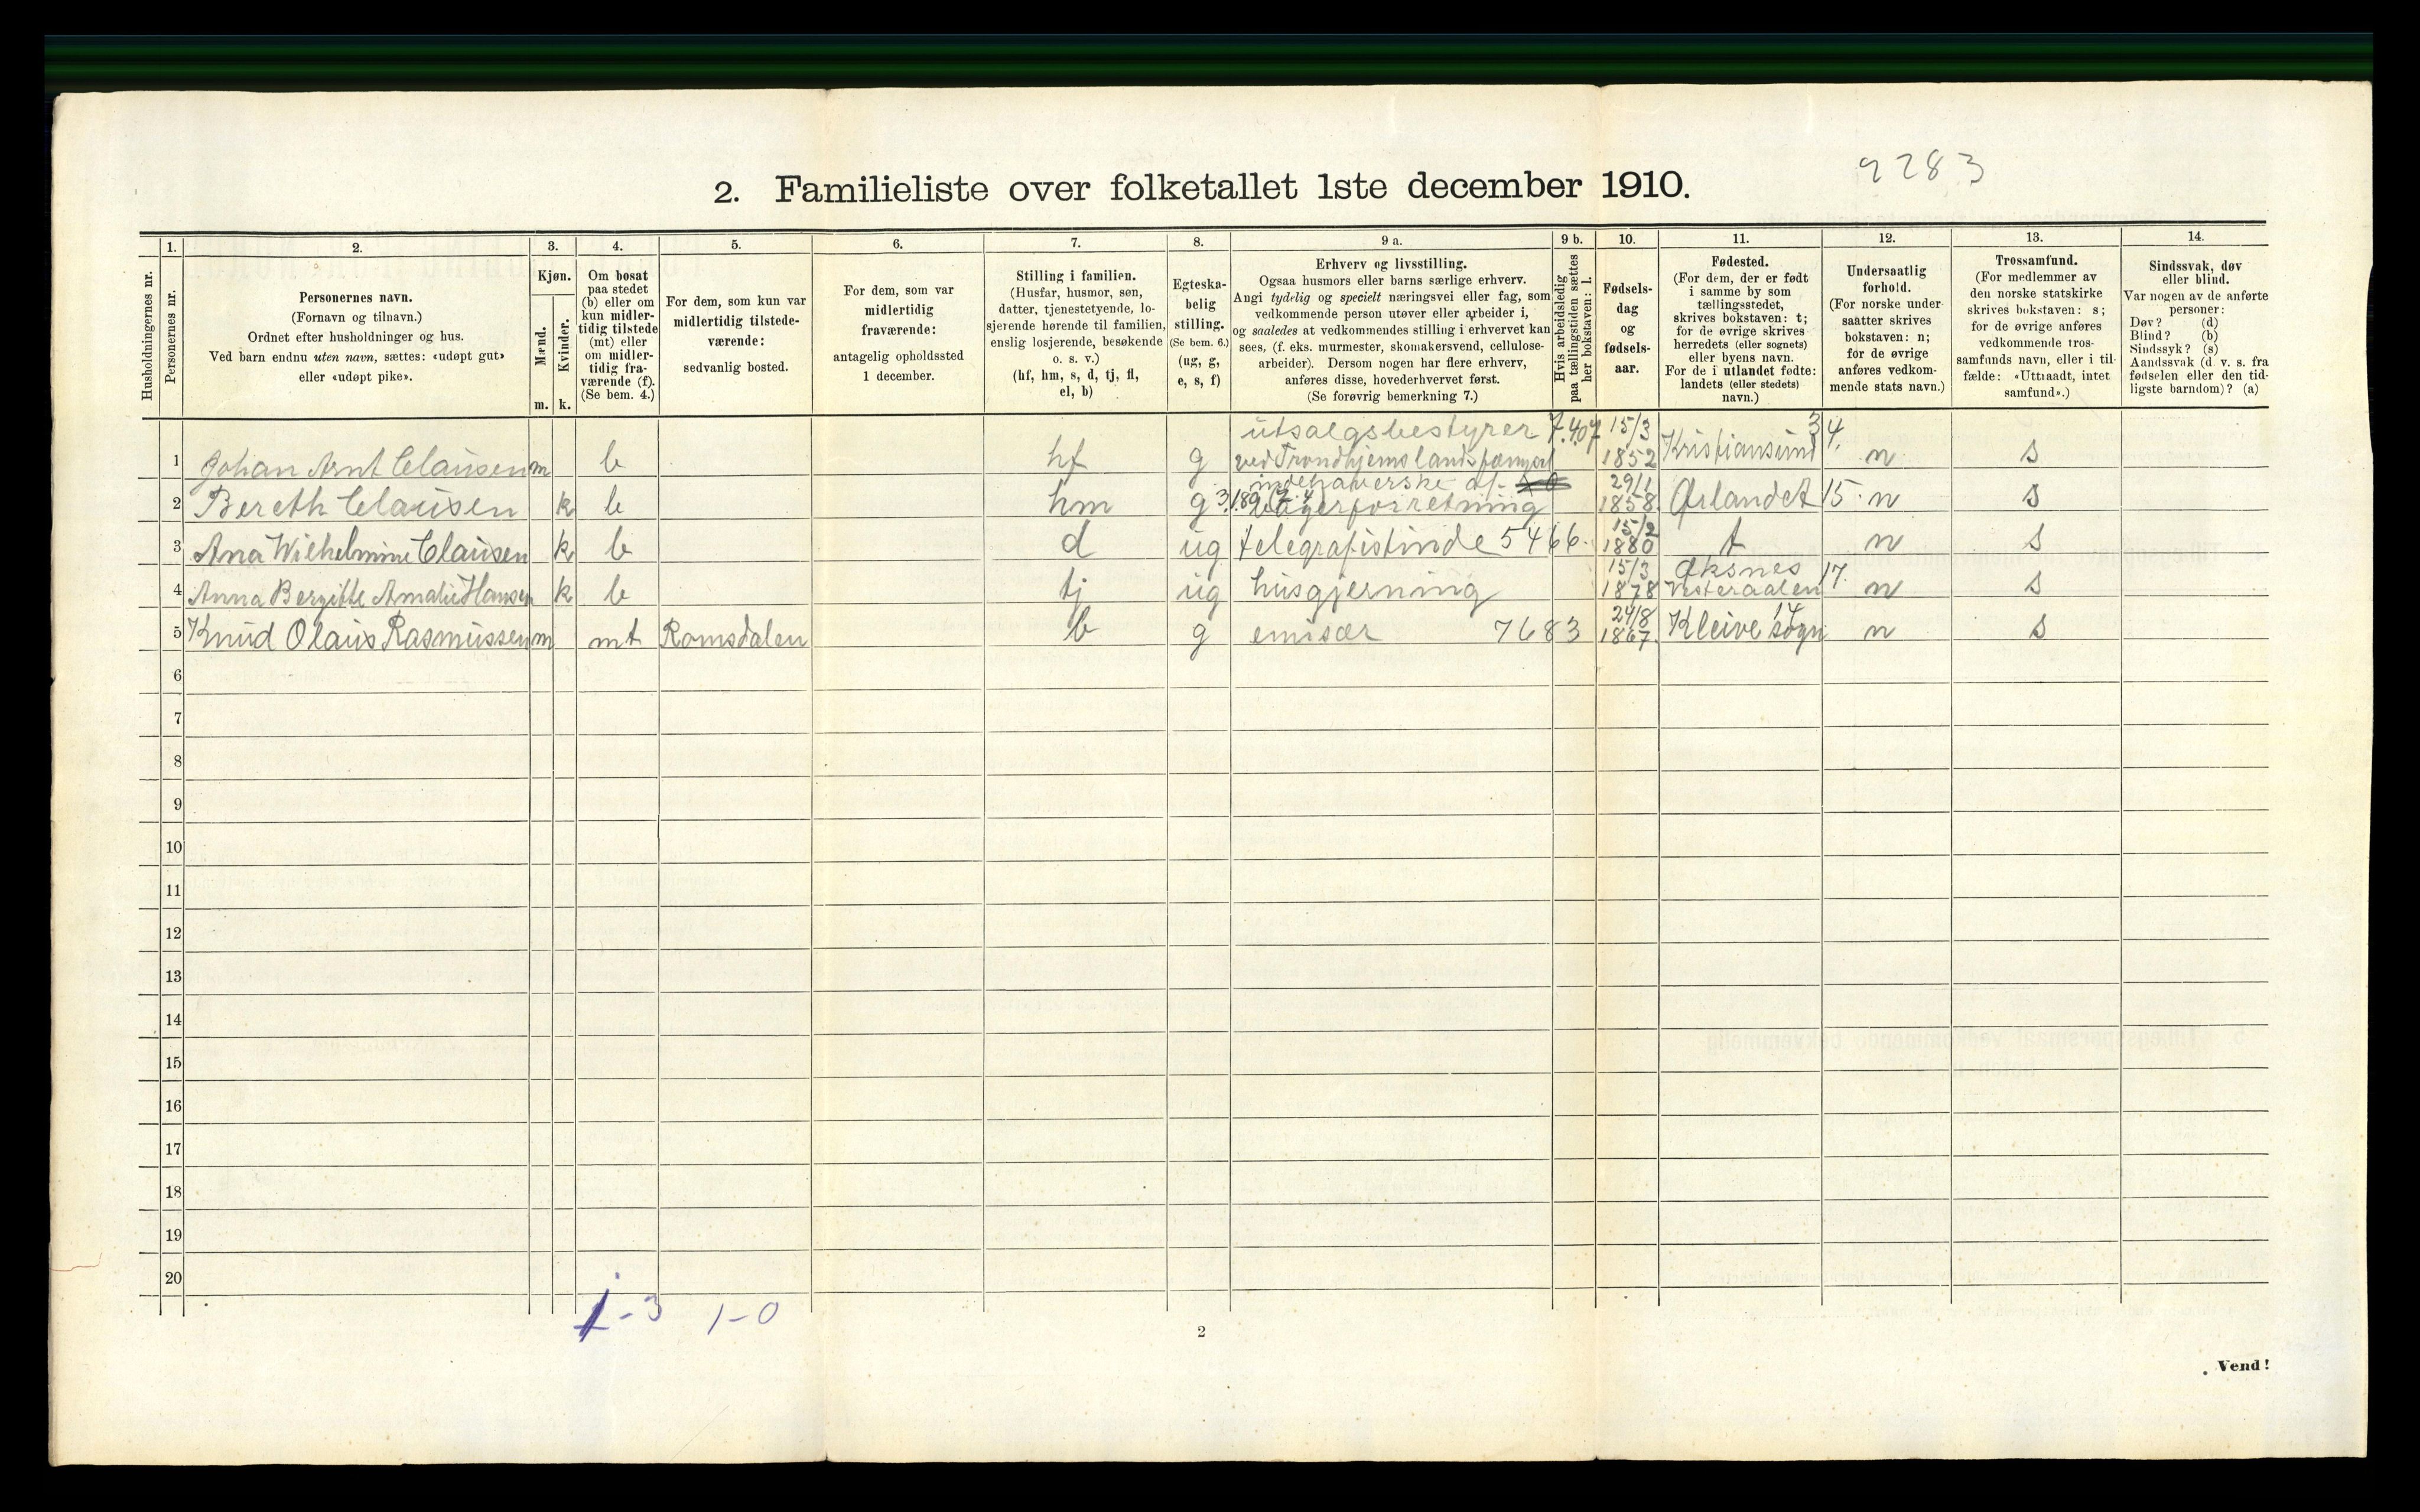 2283
2. Familieliste over folketallet 1ste december 1910.
Husholdningernes nr.
1.
Personernes nr.
2.
Personernes navn.
(Fornavn og tilnavn.)
Ordnet efter husholdninger og hus.
Ved barn endnu uten navn, sættes: «udøpt gut»
eller «udøpt pike».
3.
Kjøn.
Mænd.
m.
Kvinder.
k.
4.
Om bosat
paa stedet
(b) eller om
kun midler-
tidig tilstede
(mt) eller
om midler-
tidig fra-
værende (f).
(Se bem. 4.)
5.
For dem, som kun var
midlertidig tilstede-
værende:
sedvanlig bosted.
6.
For dem, som var
midlertidig
fraværende:
antagelig opholdssted
1 december.
7.
Stilling i familien.
(Husfar, husmor, søn,
datter, tjenestetyende, lo-
sjerende hørende til familien,
enslig losjerende, besøkende
o. s. v.)
(hf, hm, s, d, tj, fl,
el, b)
8.
Egteska-
belig
stilling.
(Se bem. 6.)
(ug, g,
e, s, f)
9 a.
Erhverv og livsstilling.
Ogsaa husmors eller barns særlige erhverv.
Angi tydelig og specielt næringsvei eller fag, som
vedkommende person utøver eller arbeider i,
og saaledes at vedkommendes stilling i erhvervet kan
sees, (f. eks. murmester, skomakersvend, cellulose-
arbeider). Dersom nogen har flere erhverv,
anføres disse, hovederhvervet først.
(Se forøvrig bemerkning 7.)
9 b.
Hvis arbeidsledig
paa tællingstiden sættes
her bokstaven: l.
10.
Fødsels-
dag
og
fødsels-
aar.
11.
Fødested.
(For dem, der er født
i samme by som
tællingsstedet,
skrives bokstaven: t;
for de øvrige skrives
herredets (eller sognets)
eller byens navn.
For de i utlandet fødte:
landets (eller stedets)
navn.)
12.
Undersaatlig
forhold.
(For norske under-
saatter skrives
bokstaven: n;
for de øvrige
anføres vedkom-
mende stats navn.)
13.
Trossamfund.
(For medlemmer av
den norske statskirke
skrives bokstaven: s;
for de øvrige anføres
vedkommende tros-
samfunds navn, eller i til-
fælde: «Uttraadt, intet
samfund».)
14.
Sindssvak, døv
eller blind.
Var nogen av de anførte
personer:
Døv? (d)
Blind? (b)
Sindssyk? (s)
Aandssvak (d. v. s. fra
fødselen eller den tid-
ligste barndom)? (a)
utsalgsbestyrer 7.407 15/3 34.
1 Johan Arnt Clausen m b hf g ved Trondhjems landsfængsel 1852 Kristiansund n s
indehaverske af 29/1
2 Bereth Clausen k b hm g bagerforretning 1858. Ørlandet 15. n s
15/2
3 Ana Wilhelmine Clausen k b d ug telegrafistinde 5466. 1880 t n s
15/3 Øksnes 17.
4 Anna Bergitte Amalie Hansen k b tj ug husgjerning 1878 Vesteraalen n s
24/8 14
5 Knud Olaus Rasmussen m mt Romsdalen b g emisær 7683 1867. Kleive sogn n s
6
7
8
9
10
11
12
13
14
15
16
17
18
19
20
1-3 1-0
2
Vend!